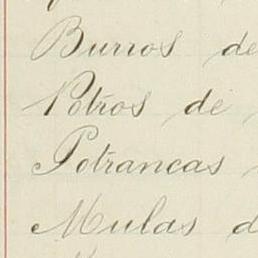 Burros de
Potros de
Potrancas
Mulas d